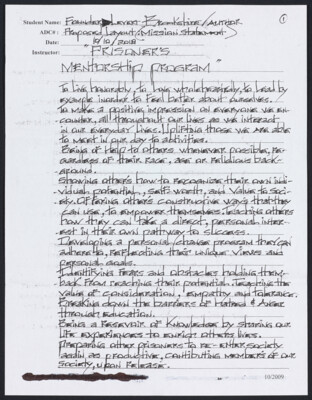 Student Name: Founder, Levert Brookshire / Author
ADC#: Proposed Layout/Mission Statement
Date: 10/10/2018
Instructor: "Prisoner's
Mentorship Program"
①
To live honorably, to love wholeheartedly, to lead by
example inorder to feel better about ourselves.
To make a positive impression on everyone we en-
counter, all throughout our lives as we interact
in our everyday lives. Uplifting those we are able
to meet in our day to activities.
Being of help to others whenever possible, re-
gardless of their race, age or religious back-
ground.
Showing others how to recognize their own indi-
vidual potential, self worth, and value to soci-
ety. Offering others constructive ways that they
can use, to empower themselves. Teaching others
how they can take a direct, personal inter-
est in their own pathway to success.
Developing a personal change program they can
adhere to, reflecting their unique views and
personal goals.
Identifying fears and obstacles holding them
back from reaching their potential. Teaching the
value of consideration, empathy and tolerance.
Breaking down the barriers of hatred & anger
through education.
Being a resevoir of knowledge by sharing our
life experiences to enrich others lives.
Preparing other prisoners to re-enter society
again as productive, contibuting members of our
society, upon release.
10/2009